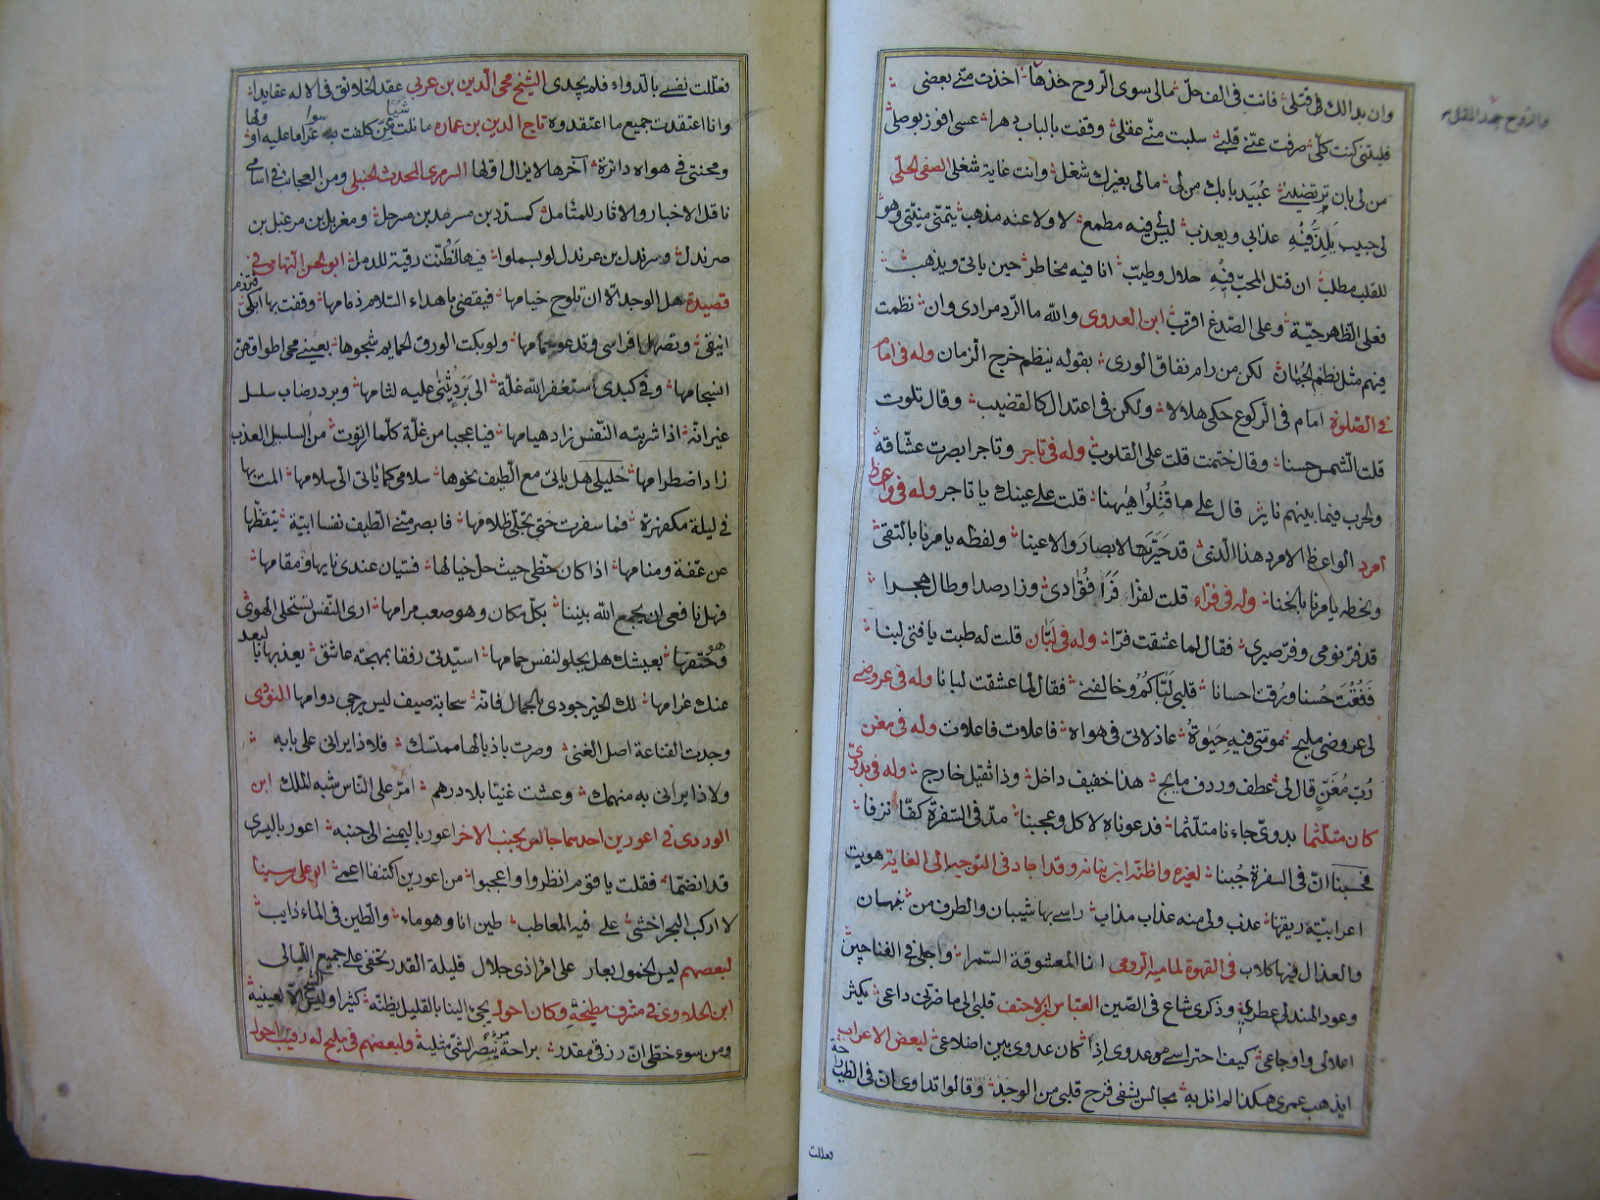 وان بدالك فى قتلى فانت فى الف حلّ مالى سوى الرّوح خذها اخذت منّى بعضى
والرّوح جهد المقلّ
فليتنى كنت كلّى صرفت عنّى قلبى سلبت منّى عقلى وقفت بالباب دهرا عسى افوز بوصلى
من لى بان ترتضينى عُبَيد بابك من لى مالى بغيرك شغل وانت غاية شغلى الصفى الحلّى
لى حبيب يلذّ فيه عذابى ويعذب ليس فيه مطمع لا ولا عنه مذهب يتمنّى منيّتى وهو
للقلب مطلب ان قتل المحبّ فيه حلال وطيّب انا فيه مخاطر حين ياتى ويذهب
فعلى الظهر حيّة وعلى الصّدغ اقرب ابن العدوى والله ما الرّد مرادى وان نظمت
فيهم مثل نظم الجمان لكن من رام نفاق الورى بقوله ينظم خرج الزمان وله فى امام
فى الصّلوة امام فى الركوع حكى هلالا ولكن فى اعتدال كالقضيب وقال تلوت
قلت الشّمس حسنا وقال ختمت قلت على القلوب وله فى تاجر وتاجر ابصرت عشّاقه
والحرب فيما بينهم ناير قال على ما قُتِلوا هيهنا قلت على عينك يا تاجر وله فى واعظ
امرد الواعظ الامرد هذا الّذى قد حيّر الابصار والاعينا ولفظه يامرنا بالتقى
ولحظه يامرنا بالخنا وله فى فرّاء قلت لفرّا فرا فؤادى وزاد صدا وطال هجرا
قد فرّ نومى وفرّ صبرى فقال لما عشقت فرّا وله فى لبّان قلت له طبت يا فتى لبنا
فَفُقْت حُسنا ورُقت احسانا قلبى لبّاكم وخالفنى فقال لما عشقت لبانا وله فى عروضى
لى عروضى مليح موتتى فيه حيوة عاذلاتى فى هواه فاعلات فاعلات وله فى مغن
رُب مُغَنٍّ قال لى عطف وردف مايج هذا خفيف داخل وذا ثقيل خارج وله فى بدوىّ
كان متلثّما بدوىّ جاءنا متلثّما فدعوناه لاكل وعجبنا مدّ فى السّفرة كفّا ترفا
فحسبنا انّ فى السفرة جُبنا لغيره واظنّه ابن نباته وقد اجاد فى التوجيه الى الغاية هويت
اعرابيّة ريقها عذب ولى منه عذاب مذاب راسى بها شيبان والطرف من نبهان
والعذال فيها كلاب فى القهوة لماميه الرومى انا المعشوقة السّمرا واجلى فى الفناجين
وعود الهند لى عطر وذكرى شاع فى الصّين العبّاس بن الاحنف قلبى الى ما ضرّنى داعى يكثر
اعلالى واوجاعى كيف احتراسى من عدوى اذا كان عدوى بين اضلاعى لبعض الاعراب
ايذهب عمرى هكذا لم انل به مجالس يشفى قرح قلبى من الوجد وقالوا تداوى ان فى الطبّ راحة
فعللت
فعللت نفسى بالدّواء فلم يجدى الشيخ محى الدّين بن عربى عقد الخلائق فى الاله عقايدا
وانا اعتقدت جميع ما اعتقدوه تاج الدين بن عماره ما نلت عن كلفت به غراما عليه او
شيا سوا ولها
ومحنتى فى هواه دائرة آخرها لا يزال اوّلها السرمرى المحدث الحنبلى ومن العجائب فى اسامى
ناقل الاخبار والاثار للمتامل كمسدّد بن مسرهد بن مسربل ومغربل بن مرعبل بن
صرندل وسرندل بن عرندل لو بسملوا فيها لظُنّت رقية للدمل ابو الحسن التهامى فى
قصيدة هل الوجد الا ان تلوح خيامها فيقضى باهداء السّلام ذمامها وقفت بها ابكى وترزم
انيقى وتصهل افراسى وتدعو حمامها ولو بكت الورق الحمايم شجوها بعينى محى اطواقهنّ
انسجامها وفى كبدى استغفر الله غلّة الى بَرَدٍ يُثنى عليه لثامها وبرد رضاب سلسل
غير انّه اذا شربته النّفس زاد هيامها فيا عجبا من غلّة كلّما ارتوت من السلسبيل العذب
زاد اضطرامها خليلى هل ياتى مع الطيف نحوها سلامى كما ياتى الىّ سلامها المت بها
فى ليلة مكفهرّة فما سفرت حتى تجلّى ظلامها فابصر منّى الطيف نفسا ابيّة تيقّظها
عن عفّة ومنامها اذا كان حظّى حيث حل خيالها فسيان عندى نايها ومقامها
فهل نافعى ان يجمع الله بيننا بكلّ مكان وهو صعب مرامها ارى النّفس تستحلى الهوى
وهو حتفها بعيشك هل يحلو لنفس حمامها اسيّدتى رفقا بمهجة عاشق يعذبها بالبعد
عنك غرامها لك الخير جودى بالجمال فانّه سحابة صيف ليس يرجى دوامها النووى
وجدت القناعة اصل الغنى وصرت باذيالها ممتسك فلا ذا يرانى على بابه
ولا ذا يرانى به منهمك وعشت غنيّا بلا درهم امرّ على النّاس شبه الملك ابن
الوردى فى اعورين احدهما جالس بجنب الاخر اعور باليمنى الى جنبه اعور باليسرى
قد انضمّا فقلت يا قوم انظروا واعجبوا من اعورين اكتنفا اعمى ابو على بن سينا
لا اركب البحر اخشى على فيه المعاطب طين انا وهو ماء والطّين فى الماء ذايب
لبعضهم ليس الخمول بعار على امرء ذى جلال فليلة القدر تخفى على جميع الليالى
ابن الحلاوى فى مشرف مطبخه وكان احول يجئ الينا بالقليل يظنّه كثيرا وليس الشحّ الا لعينيه
ومن سوء حظّى انّ رزقى مقدر براحة مَرْء يُبصر الشئ مثليه ولبعضهم فى مليح له رقيب احول